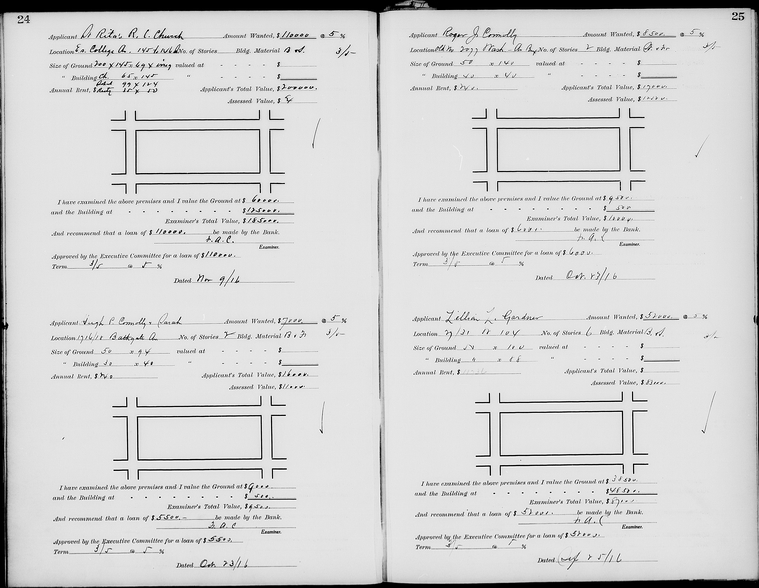 24
Applicant St Rita's R. C. Church Amount Wanted, $ 110000 @ 5 %
Location College A. 145 No. of Stories Bldg. Material B 3/5-
Size of Ground 200 x 145 x 69 x valued at - - - $
" Building Ch 65 x 145 " - - - $
99 x 124
Annual Rent, $ Recty 35 x 50 Applicant's Total Value, $ 200000.
Assessed Value, $
I have examined the above premises and I value the Ground at $ 60000.
and the Building at - - - - - - - $ 125000.
Examiner's Total Value, $ 185000.
And recommend that a loan of $ 110000. be made by the Bank.
F. A. C.
Examiner.
Approved by the Executive Committee for a loan of $ 110000.
Term 3/5 @ 5 %
Dated Nov 9/16
Applicant Hugh P Connolly & Sarah Amount Wanted, $ 7000. @ 5 %
Location 1716/18 Bathgate A No. of Stories 2 Bldg. Material B & Fr 3/5-
Size of Ground 50 x 94 valued at - - - $
" Building 50 x 40 " - - - $
Annual Rent, $ Applicant's Total Value, $ 16000.
Assessed Value, $ 11000.
I have examined the above premises and I value the Ground at $ 9000.
and the Building at - - - - - - - $ 500.
Examiner's Total Value, $ 9500.
And recommend that a loan of $ 5500.- be made by the Bank.
F. A. C
Examiner.
Approved by the Executive Committee for a loan of $ 5500.
Term 3/5 @ 5 %
Dated Oct 23/16
25
Applicant Roger J. Connolly Amount Wanted, $ 8500. @ 5 %
Location No. of Stories 2 Bldg. Material
Size of Ground 50 x 140 valued at - - - $
" Building x 40 " - - - $
Annual Rent, $ Applicant's Total Value, $
Assessed Value, $
I have examined the above premises and I value the Ground at $ 9500.
and the Building at - - - - - - - $ 500
Examiner's Total Value, $ 10000.
And recommend that a loan of $ 6000. be made by the Bank.
F. A. C
Examiner.
Approved by the Executive Committee for a loan of $ 6000.
Term 3/5 @ 5 %
Dated Oct. 23/16
Applicant Lillian L. Gardner Amount Wanted, $ @ %
Location No. of Stories 6 Bldg. Material
Size of Ground x 100 valued at - - - $
" Building x 88 " - - - $
Annual Rent, $ Applicant's Total Value, $
Assessed Value, $ 83000.
I have examined the above premises and I value the Ground at $ 38500.
and the Building at - - - - - - - $ 48500.
Examiner's Total Value, $ 87000.
And recommend that a loan of $ be made by the Bank.
F. A. C
Examiner.
Approved by the Executive Committee for a loan of $
Term @ 5 %
Dated 25/16